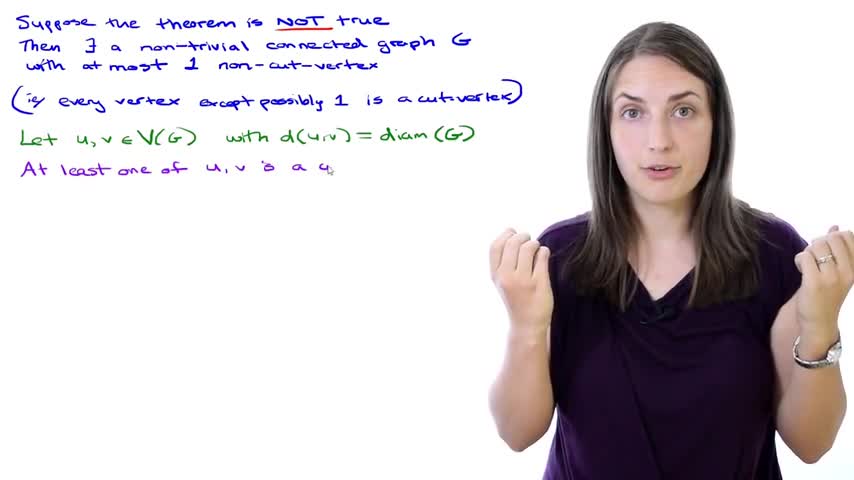 Suppose the theorem is NOT true
Then ∃ a non-trivial connected graph G
with at most 1 non-cut-vertex
(ie every vertex except possibly 1 is a cut-vertex)
Let u, v ∈ V(G) with d(u,v) = diam(G)
At least one of u, v is a